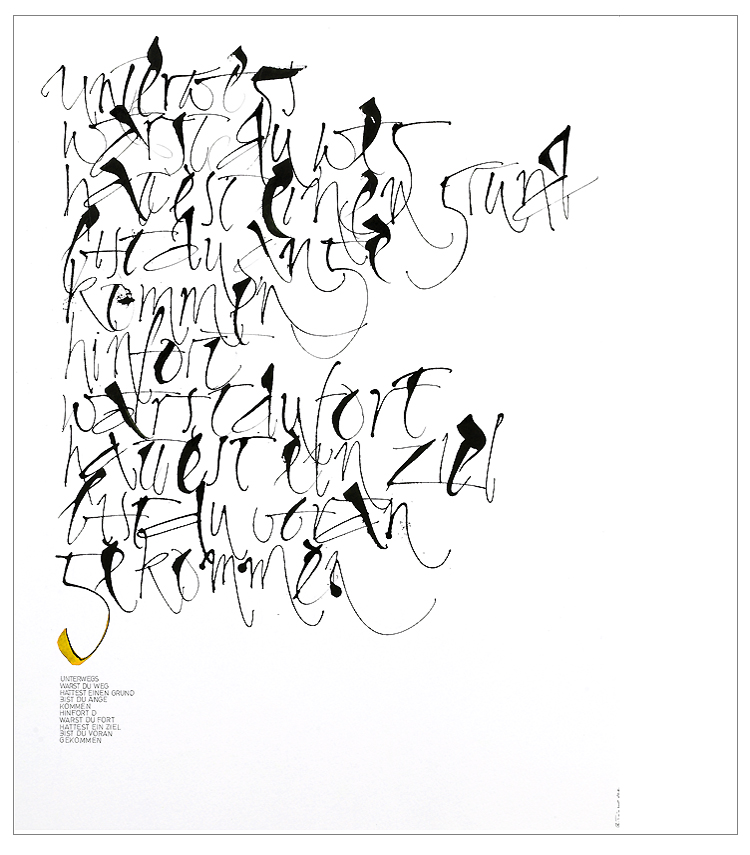 unterwegs
warst du weg
hattest einen grund
bist du ange
kommen
hinfort
warst du fort
hattest ein ziel
bist du voran
gekommen
UNTERWEGS
WARST DU WEG
HATTEST EINEN GRUND
BIST DU ANGE
KOMMEN
HINFORT D
WARST DU FORT
HATTEST EIN ZIEL
BIST DU VORAN
GEKOMMEN